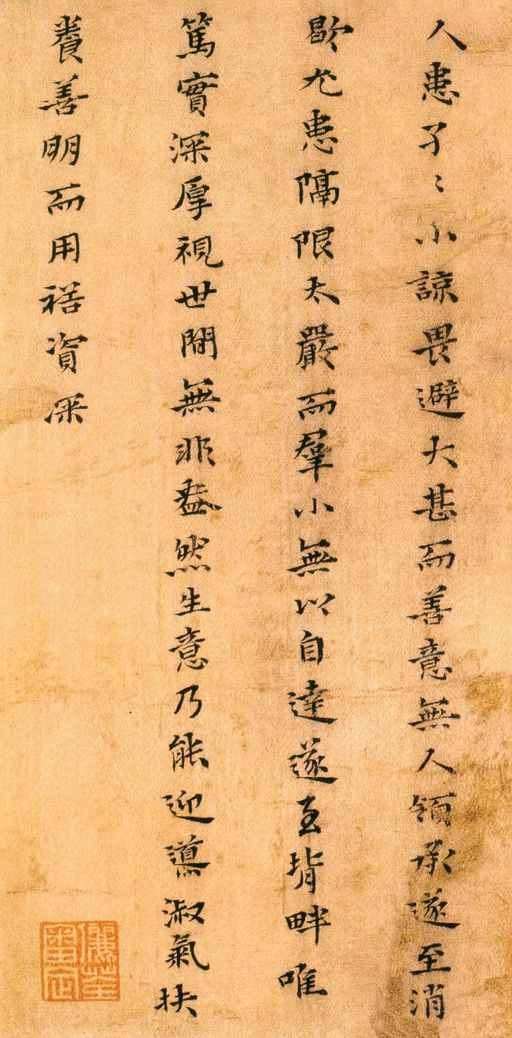 人患孑〻小諒畏避大甚而善意無人領承遂至消
歇尤患隔限太嚴而羣小無以自達遂至背畔唯
篤實深厚視世間無非盎然生意乃能迎導淑氣扶
養善明而用裕資深